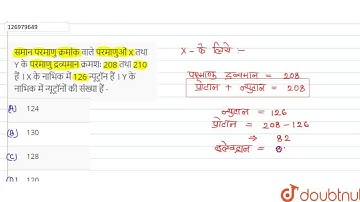 126979649
समान परमाणु क्रमांक वाले परमाणुओं X तथा
Y के परमाणु द्रव्यमान क्रमशः 208 तथा 210
हैं I X के नाभिक में 126 न्यूट्रॉन हैं I Y के
नाभिक में न्यूट्रॉनों की संख्या हैं -
A) 124
B) 130
C) 128
D) 120
X - के लिये :-
परमाणु द्रव्यमान = 208
प्रोटान + न्युटान = 208
न्युटान = 126
प्रोटान = 208 - 126
⇒ 82
इलेक्ट्रान = 8
doubtnut